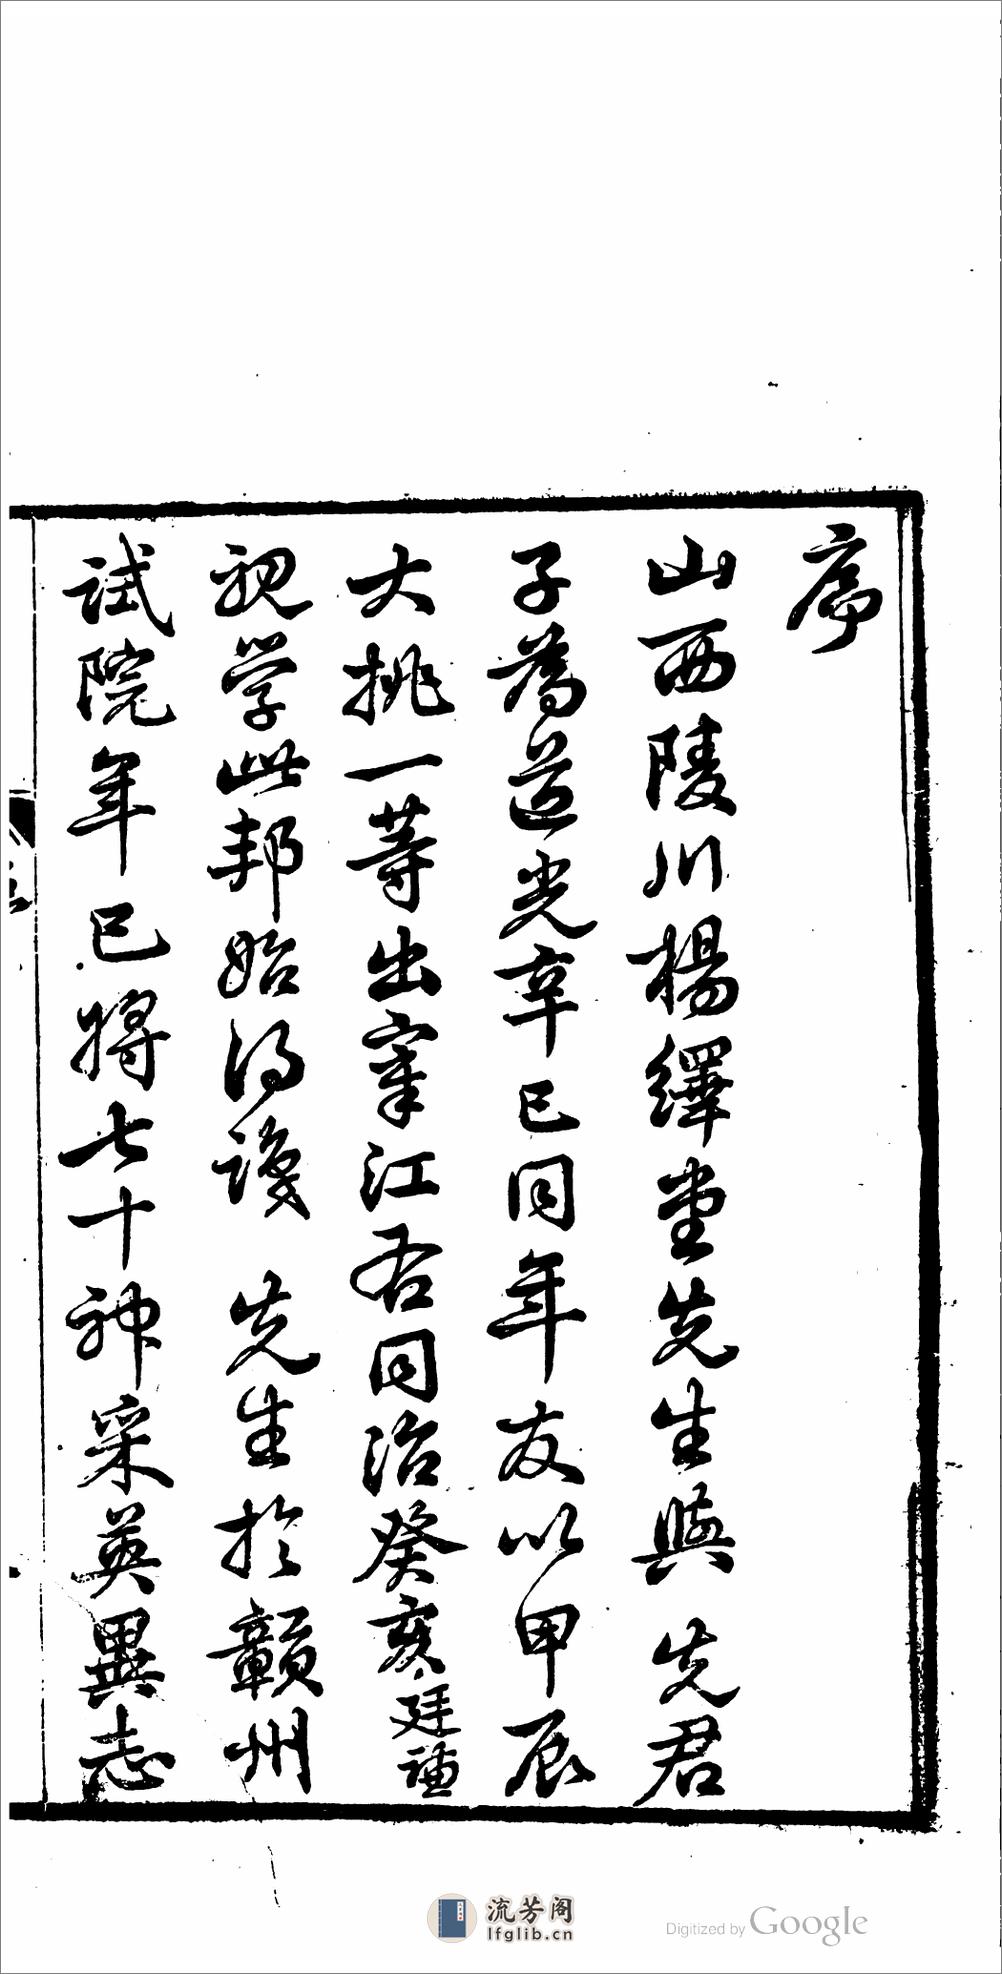 序
山西陵川楊繹堂先生與 先君
子為道光辛巳同年友以甲辰
大挑一等出宰江右同治癸亥廷謙
視學此邦始得識 先生於贛州
試院年已將七十神采英異志
流芳阁
lfglib.cn
Digitized by Google